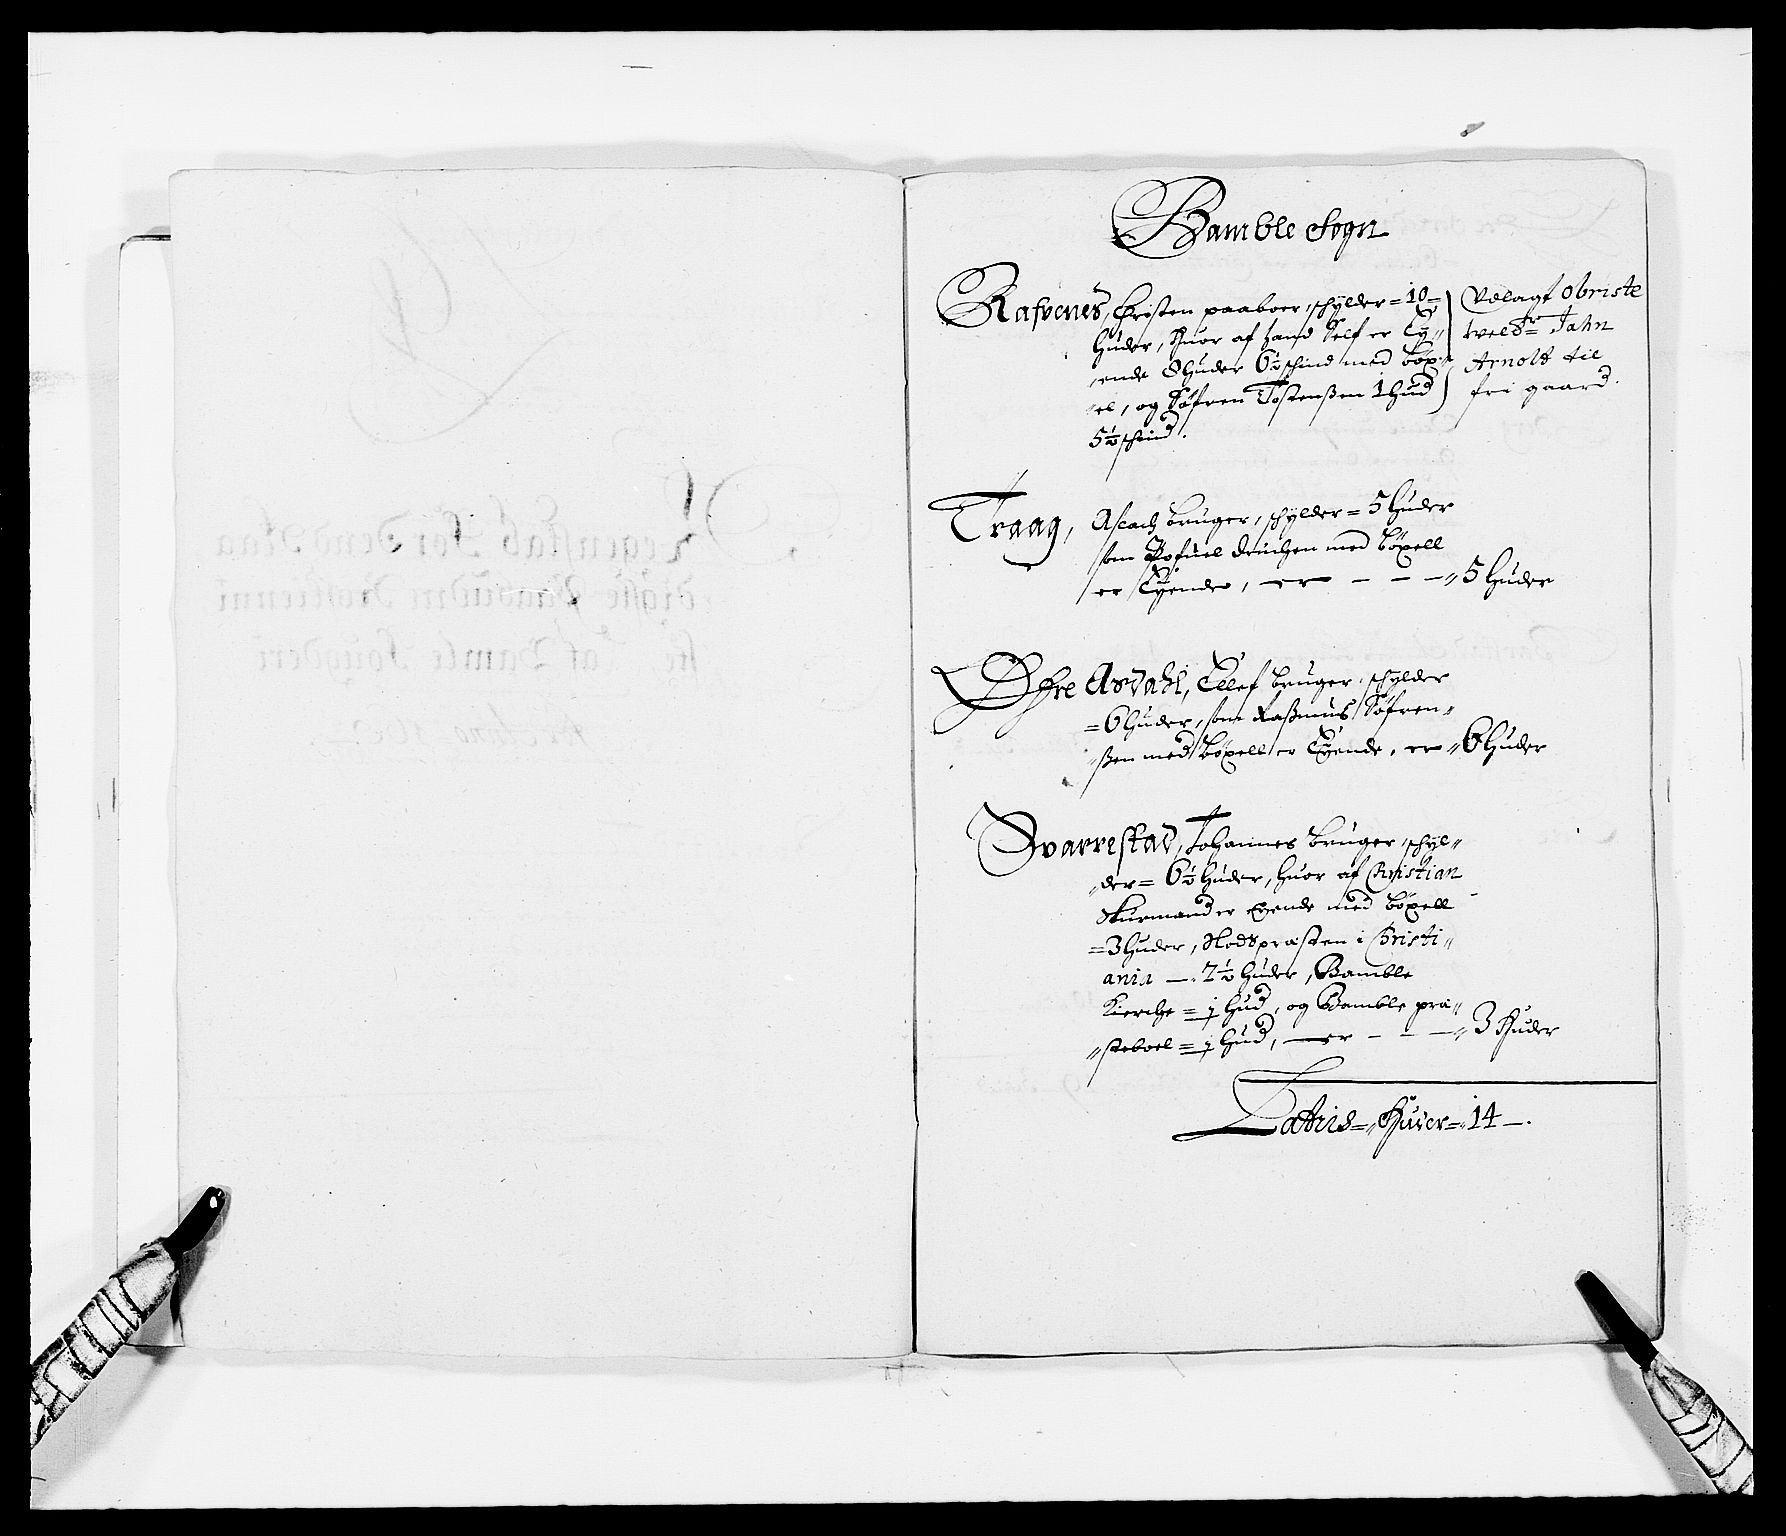 Bamble Sogn
Rafvenes, Christen paaboer, schylder = 10 =
huder, huor af hand Self er Ey„
„ende 8 huder 6½ schind med böx„
„el, og Söfren Tostenßen 1 hud
5½ schind.
Vdlagt Obriste
Jahn
Arnold til
fri gaard.
Traag, Aslach bruger, schylder = 5 huder
som Pofuel med böxell
er Eyende, — er — — — „ 5 huder
Öfre Asdahl, Ellef bruger, schylder
= 6 huder, som Raßmus Söfren„
„ßen med böxell er Eyende, er „ 6 huder
Dvarrestad, Johannes bruger, schyl„
„der = 6½ huder, huor af Christian
Skurmand er Eyende med böxell
= 3 huder, Slodspræsten i Christi„
ania — 2½ huder, Bamble
Kierche = ½ hud, og Bamble præ„
„steboel = ½ hud, — er — — — „ 3 huder
Latus = „ Huder = 14 —.